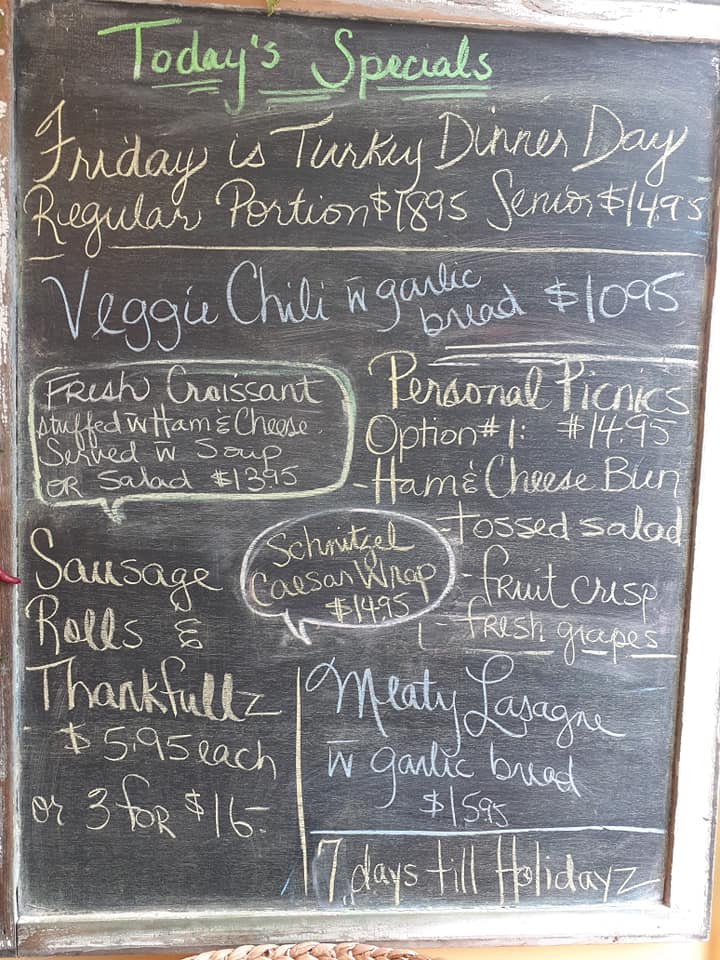 Today's Specials
Friday is Turkey Dinner Day
Regular Portion $1895 Senior $1495
Veggie Chili w̄ garlic
bread $1095
Fresh Croissant
stuffed w̄ Ham & Cheese.
Served w̄ Soup
OR Salad $1395
Personal Picnics
Option #1: $14.95
- Ham & Cheese Bun
- tossed salad
- fruit crisp
- fresh grapes
Schnitzel
Caesar Wrap
$14.95
Sausage
Rolls &
Thankfullz
$5.95 each
or 3 for $16-
Meaty Lasagne
w̄ garlic bread
$1595
7 days till Holidayz